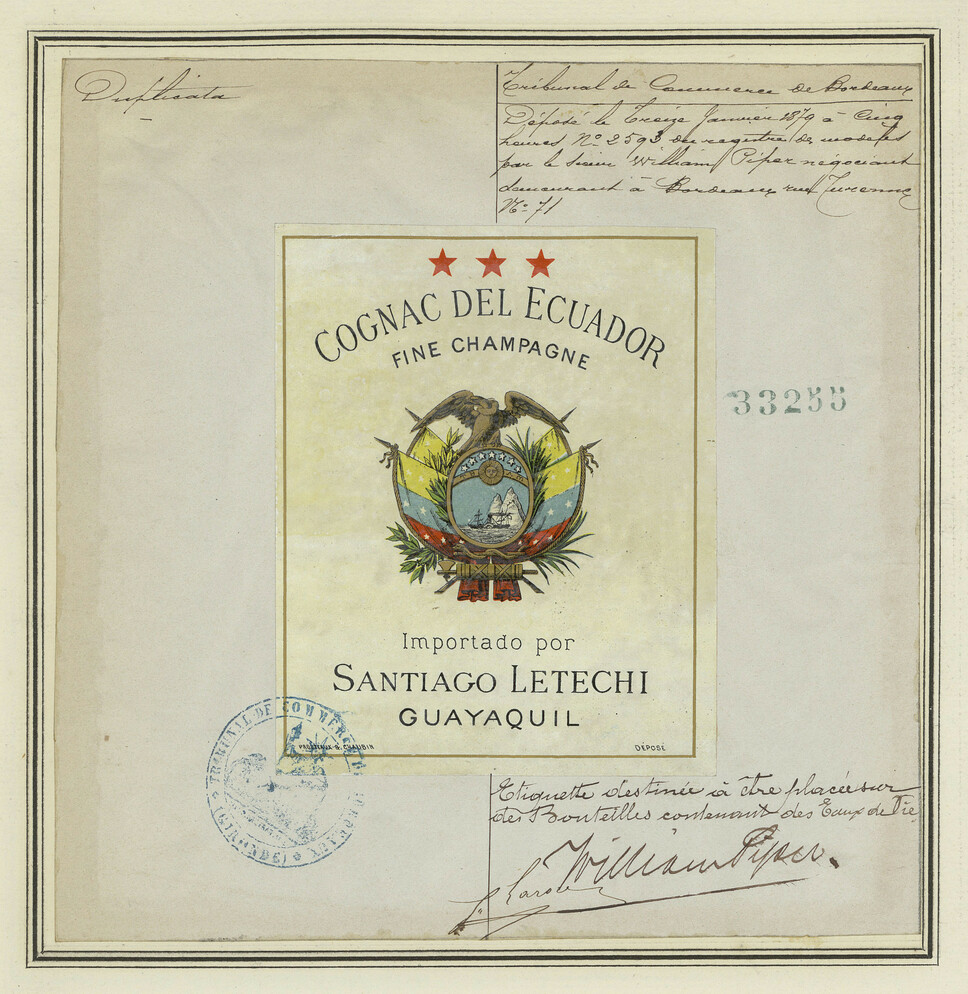 Duplicata
Tribunal de Commerce de Bordeaux
Déposé le Treize Janvier 1879 à Cinq
heures, No 2593 du registre de modèles
par le sieur William Piper négociant
demeurant à Bordeaux rue Turenne
No 71
COGNAC DEL ECUADOR
FINE CHAMPAGNE
33255
Importado por
SANTIAGO LETECHI
GUAYAQUIL
DÉPOSÉ
TRIBUNAL DE COMMERCE DE BORDEAUX
(GIRONDE)
Etiquette destinée à être placée sur
des Bouteilles contenant des Eaux de Vie
William Piper.